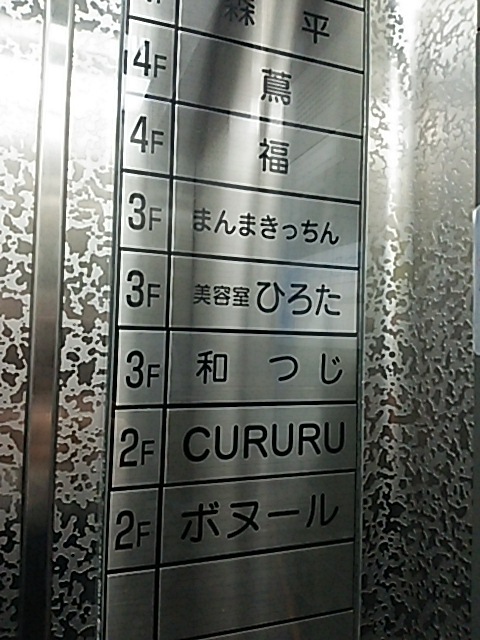 森 平
4F 蔦
4F 福
3F まんまきっちん
3F 美容室 ひろた
3F 和 つじ
2F CURURU
2F ボヌール